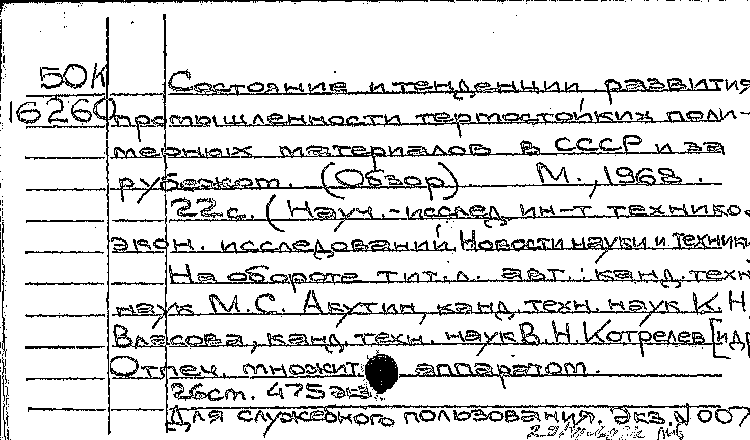 50К Состояние и тенденции развития
16260 промышленности термостойких поли-
мерных материалов в СССР и за
рубежом. (Обзор) М., 1968.
22с. (Науч.-исслед. ин-т технико.
экон. исследований. Новости науки и техники
На обороте тит.л. авт.: канд. техн
наук М.С. Акутин, канд. техн. наук К.Н.
Власова, канд. техн. наук В.Н. Котрелев [и др
Отпеч. множит. аппаратом.
26см. 475 экз.
Для служебного пользования. Экз. N 007